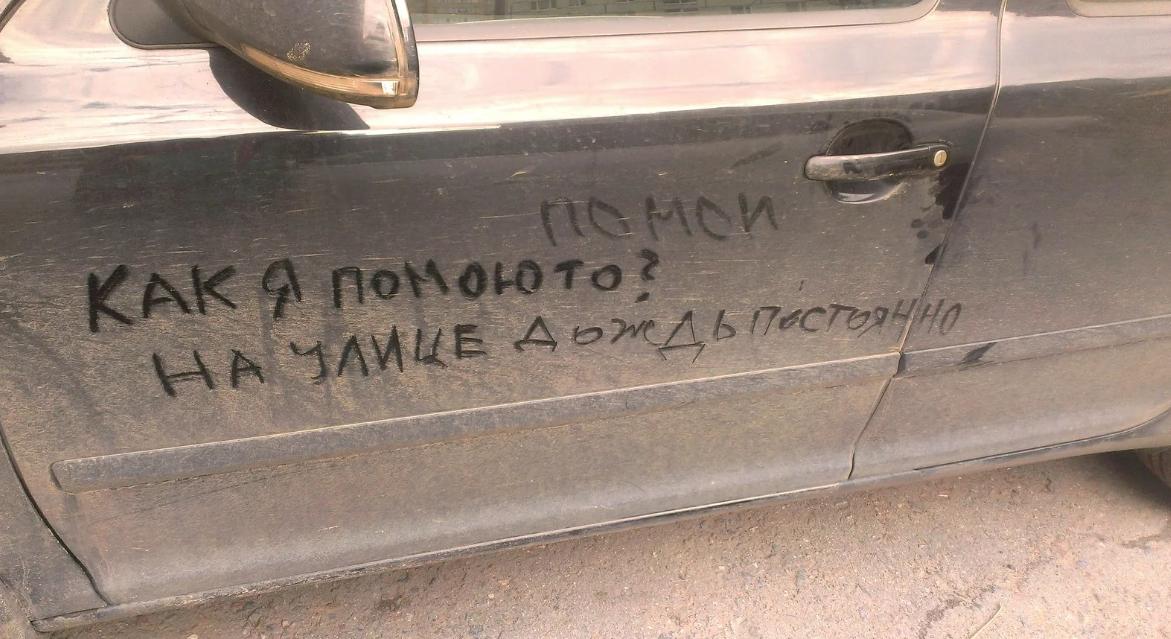 ПОМОЙ
КАК Я ПОМОЮТО?
НА УЛИЦЕ ДОЖДЬ ПОСТОЯННО